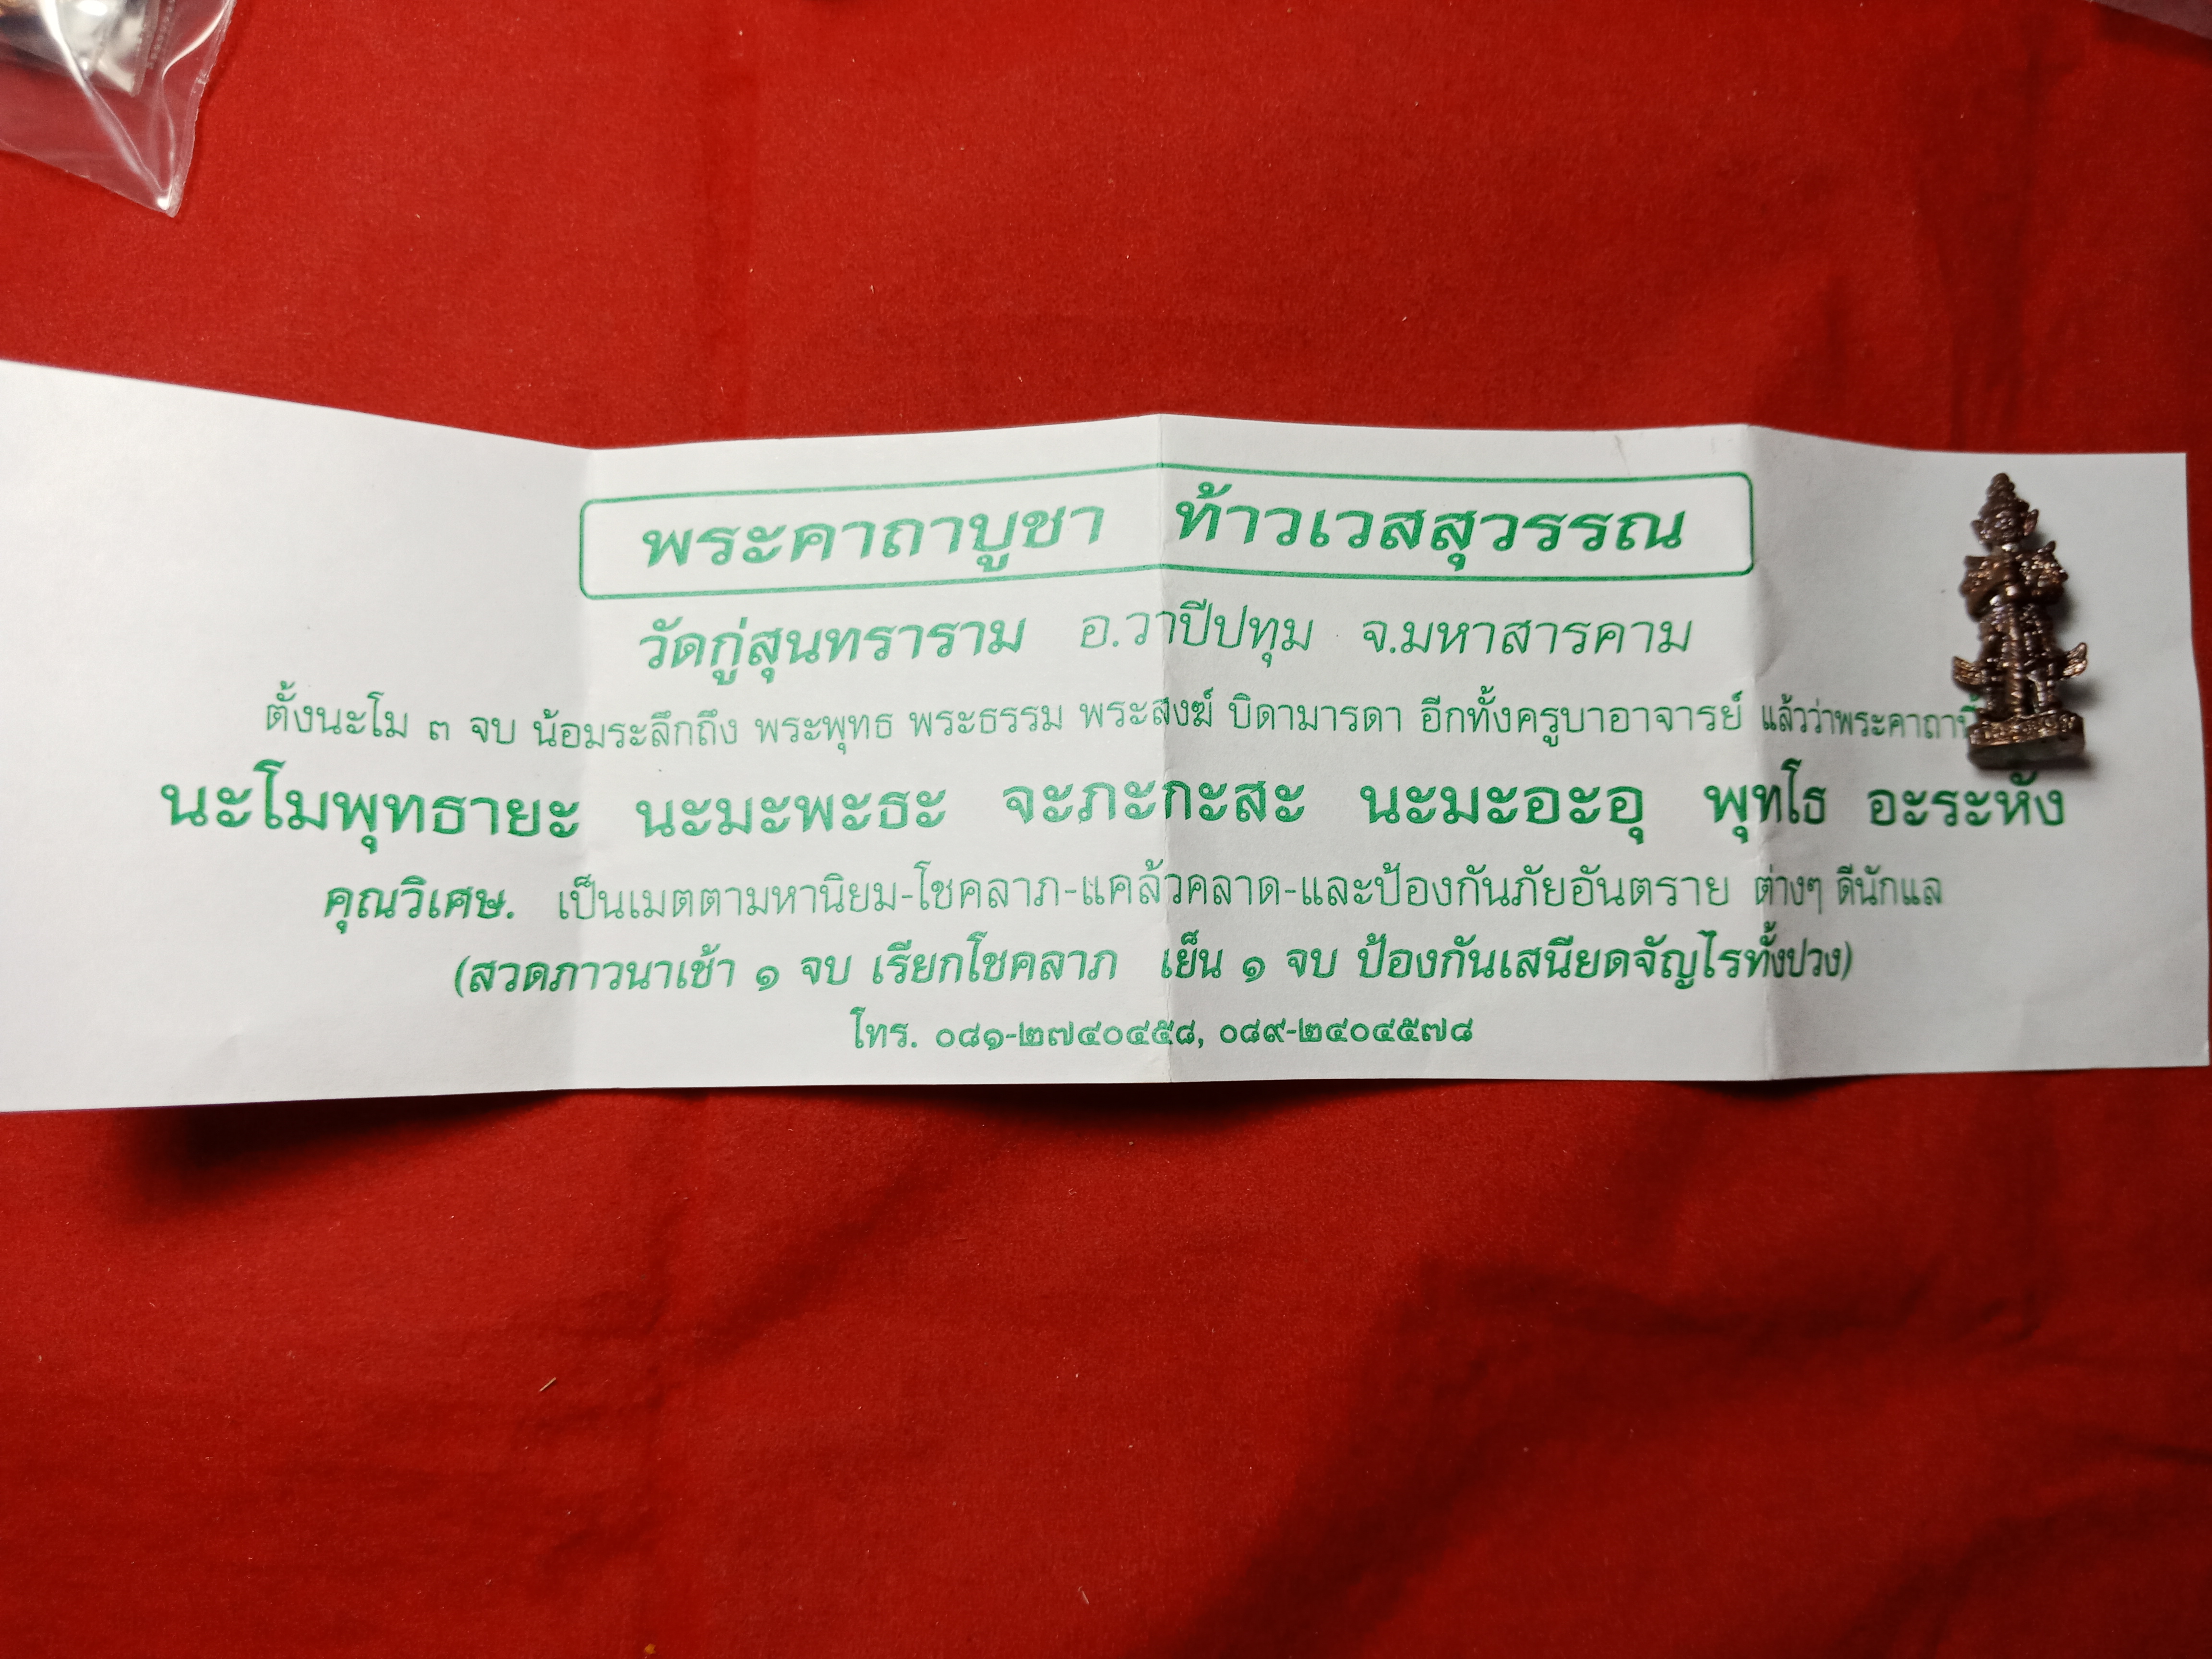 พระคาถาบูชา ท้าวเวสสุวรรณ
วัดกู่สุนทราราม อ.วาปีปทุม จ.มหาสารคาม
ตั้งนะโม ๓ จบ น้อมระลึกถึง พระพุทธ พระธรรม พระสงฆ์ บิดามารดา อีกทั้งครูบาอาจารย์ แล้วว่าพระคาถานี้
นะโมพุทธายะ นะมะพะธะ จะภะกะสะ นะมะอะอุ พุทโธ อะระหัง
คุณวิเศษ. เป็นเมตตามหานิยม-โชคลาภ-แคล้วคลาด-และป้องกันภัยอันตราย ต่างๆ ดีนักแล
(สวดภาวนาเช้า ๑ จบ เรียกโชคลาภ เย็น ๑ จบ ป้องกันเสนียดจัญไรทั้งปวง)
โทร. ๐๘๑-๒๗๔๐๔๕๘, ๐๘๙-๒๔๐๔๕๗๘